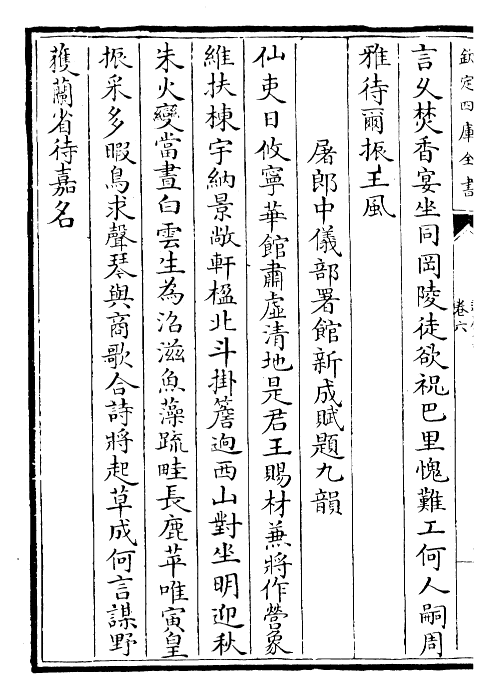 欽定四庫全書
卷六
言久焚香宴坐同岡陵徒欲祝巴里愧難工何人嗣周
雅待爾振王風
屠郎中儀部署館新成賦題九韻
仙吏日攸寧華館肅虛清地是君王賜材兼將作營象
維扶棟宇納景敞軒楹北斗掛簷逈西山對坐明迎秋
朱火變當晝白雲生為沼滋魚藻疏畦長鹿苹唯寅皇
振采多暇鳥求聲琴與商歌合詩將起草成何言謀野
獲蘭省待嘉名